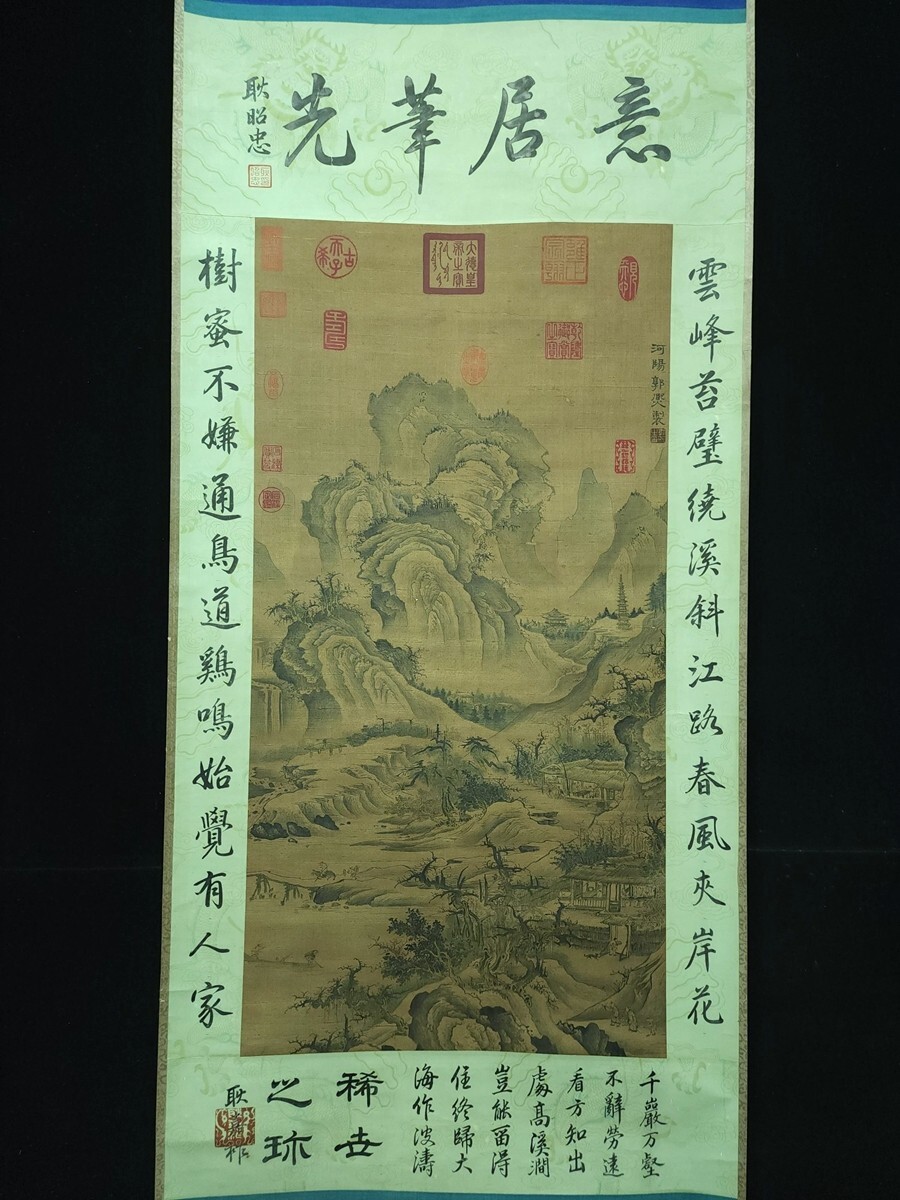 意居筆先
耿昭忠
雲峰苔壁繞溪斜江路春風夾岸花
樹蜜不嫌通鳥道鷄鳴始覺有人家
古希天子
乾隆御覽之寶
河陽郭熙製
千巖万壑
不辭勞遠
看方知出
處高溪澗
豈能畱得
住終歸大
海作波濤
稀世
之珎
耿